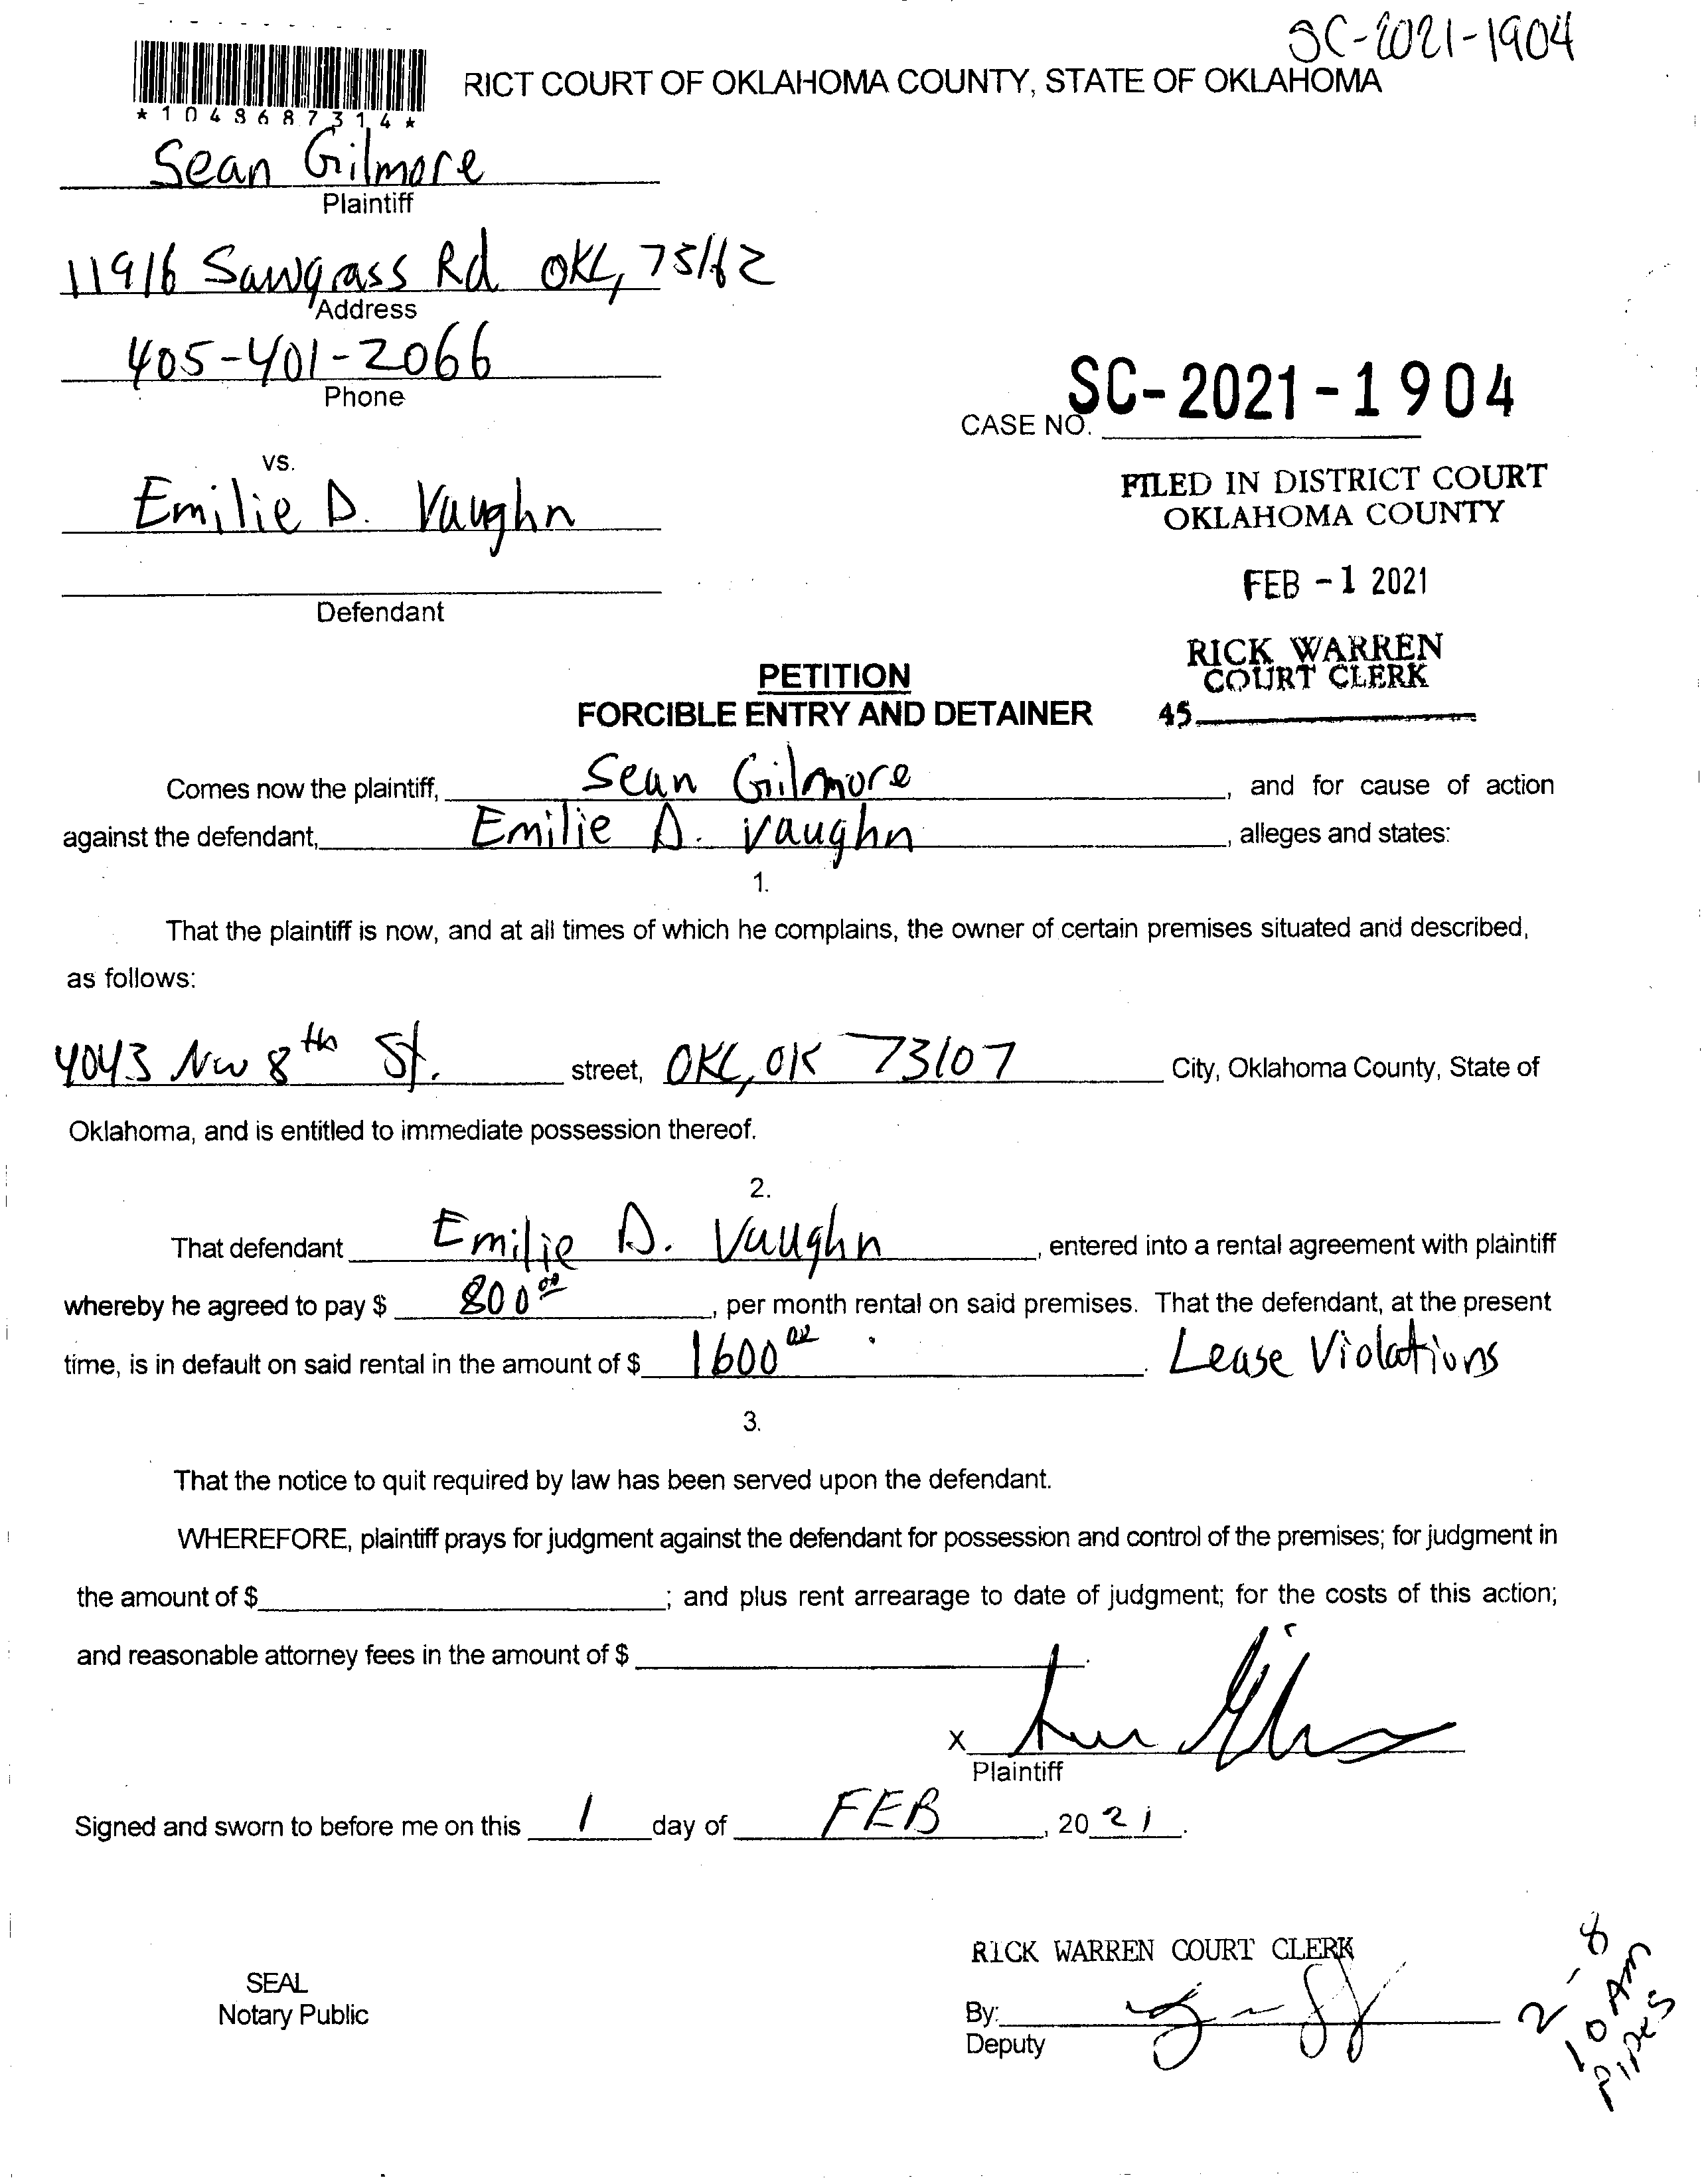 SC-2021-1904
RICT COURT OF OKLAHOMA COUNTY, STATE OF OKLAHOMA
*1048687314*
Sean Gilmore
Plaintiff
11916 Sawgrass Rd OKC, 73162
Address
405-401-2066
Phone
CASE NO. SC-2021-1904
vs.
FILED IN DISTRICT COURT
OKLAHOMA COUNTY
Emilie D. Vaughn
FEB -1 2021
Defendant
RICK WARREN
COURT CLERK
45
PETITION
FORCIBLE ENTRY AND DETAINER
Comes now the plaintiff, Sean Gilmore, and for cause of action
against the defendant, Emilie D. Vaughn, alleges and states:
1.
That the plaintiff is now, and at all times of which he complains, the owner of certain premises situated and described,
as follows:
4043 NW 8th St. street, OKC, OK 73107 City, Oklahoma County, State of
Oklahoma, and is entitled to immediate possession thereof.
2.
That defendant Emilie D. Vaughn, entered into a rental agreement with plaintiff
whereby he agreed to pay $ 800 00, per month rental on said premises. That the defendant, at the present
time, is in default on said rental in the amount of $ 1600 00. Lease Violations
3.
That the notice to quit required by law has been served upon the defendant.
WHEREFORE, plaintiff prays for judgment against the defendant for possession and control of the premises; for judgment in
the amount of $ ; and plus rent arrearage to date of judgment; for the costs of this action;
and reasonable attorney fees in the amount of $ .
X
Plaintiff
Signed and sworn to before me on this 1 day of FEB, 20 21.
RICK WARREN COURT CLERK
SEAL
Notary Public
By:
Deputy
2-8
10 AM
PIPES